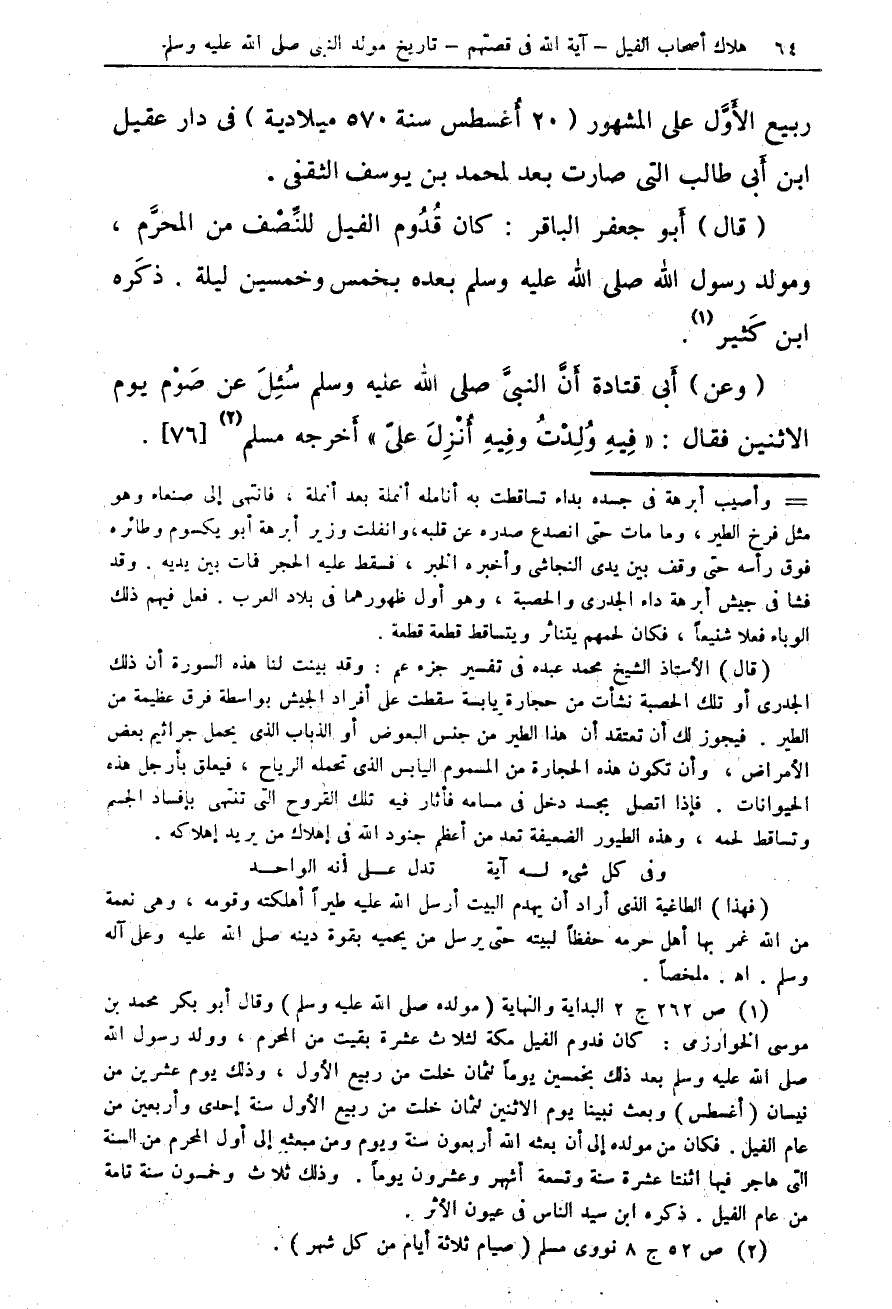 ٦٤ هلاك أصحاب الفيل – آية الله فى قصتهم – تاريخ مولد النبى صلى الله عليه وسلم.
ربيع الأَوَّل على المشهور ( ٢٠ أُغسطس سنة ٥٧٠ ميلادية ) فى دار عقيل
ابن أَبى طالب التى صارت بعد لمحمد بن يوسف الثقفى .
( قال ) أَبو جعفر الباقر : كان قُدُوم الفيل للنِّصْف من المحرَّم ،
ومولد رسول الله صلى الله عليه وسلم بعده بخمس وخمسين ليلة . ذكَره
ابن كَثير (١).
( وعن ) أَبى قتادة أَنَّ النبىَّ صلى الله عليه وسلم سُئِلَ عن صَوْم يوم
الاثنين فقال : « فِيهِ وُلِدْتُ وفِيهِ أُنْزِلَ علىّ » أَخرجه مسلم (٢) [٧٦] .
= وأصيب أبرهة فى جسده بداء تساقطت به أنامله أنملة بعد أنملة ، فانتهى إلى صنعاء وهو
مثل فرخ الطير ، وما مات حتى انصدع صدره عن قلبه، وانفلت وزير أبرهة أبو يكسوم وطائره
فوق رأسه حتى وقف بين يدى النجاشى وأخبره الخبر ، فسقط عليه الحجر فمات بين يديه . وقد
فشا فى جيش أبرهة داء الجدرى والحصبة ، وهو أول ظهورهما فى بلاد العرب . فعل فيهم ذلك
الوباء فعلا شنيعاً ، فكان لحمهم يتناثر ويتساقط قطعة قطعة .
( قال ) الأستاذ الشيخ محمد عبده فى تفسير جزء عم : وقد بينت لنا هذه السورة أن ذلك
الجدرى أو تلك الحصبة نشأت من حجارة يابسة سقطت على أفراد الجيش بواسطة فرق عظيمة من
الطير . فيجوز لك أن تعتقد أن هذا الطير من جنس البعوض أو الذباب الذى يحمل جراثيم بعض
الأمراض ، وأن تكون هذه الحجارة من المسموم اليابس الذى تحمله الرياح ، فيعلق بأرجل هذه
الحيوانات . فإذا اتصل بجسد دخل فى مسامه فأثار فيه تلك القروح التى تنتهى بإفساد الجسم
وتساقط لحمه ، وهذه الطيور الضعيفة تعد من أعظم جنود الله فى إهلاك من يريد إهلاكه .
وفى كل شىء لــه آية تدل عــلى أنه الواحــد
( فهذا ) الطاغية الذى أراد أن يهدم البيت أرسل الله عليه طيراً أهلكته وقومه ، وهى نعمة
من الله غمر بها أهل حرمه حفظاً لبيته حتى يرسل من يحميه بقوة دينه صلى الله عليه وعلى آله
وسلم . اهـ . ملخصاً .
(١) ص ٢٦٢ ج ٢ البداية والنهاية ( مولده صلى الله عليه وسلم ) وقال أبو بكر محمد بن
موسى الخوارزمى : كان قدوم الفيل مكة لثلاث عشرة بقيت من المحرم ، وولد رسول الله
صلى الله عليه وسلم بعد ذلك بخمسين يوماً لثمان خلت من ربيع الأول ، وذلك يوم عشرين من
نيسان ( أغسطس ) وبعث نبينا يوم الاثنين لثمان خلت من ربيع الأول سنة إحدى وأربعين من
عام الفيل . فكان من مولده إلى أن بعثه الله أربعون سنة ويوم ومن مبعثه إلى أول المحرم من السنة
التى هاجر فيها اثنتا عشرة سنة وتسعة أشهر وعشرون يوماً . وذلك ثلاث وخمسون سنة تامة
من عام الفيل . ذكره ابن سيد الناس فى عيون الأثر .
(٢) ص ٥٢ ج ٨ نووى مسلم ( صيام ثلاثة أيام من كل شهر ) .